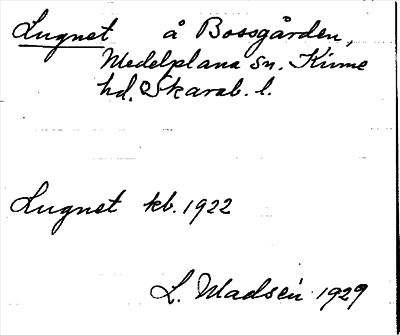 Lugnet å Bossgården,
Medelplana sn. Kinne
hd. Skarab. l.
Lugnet kb. 1922
L. Madsén 1929